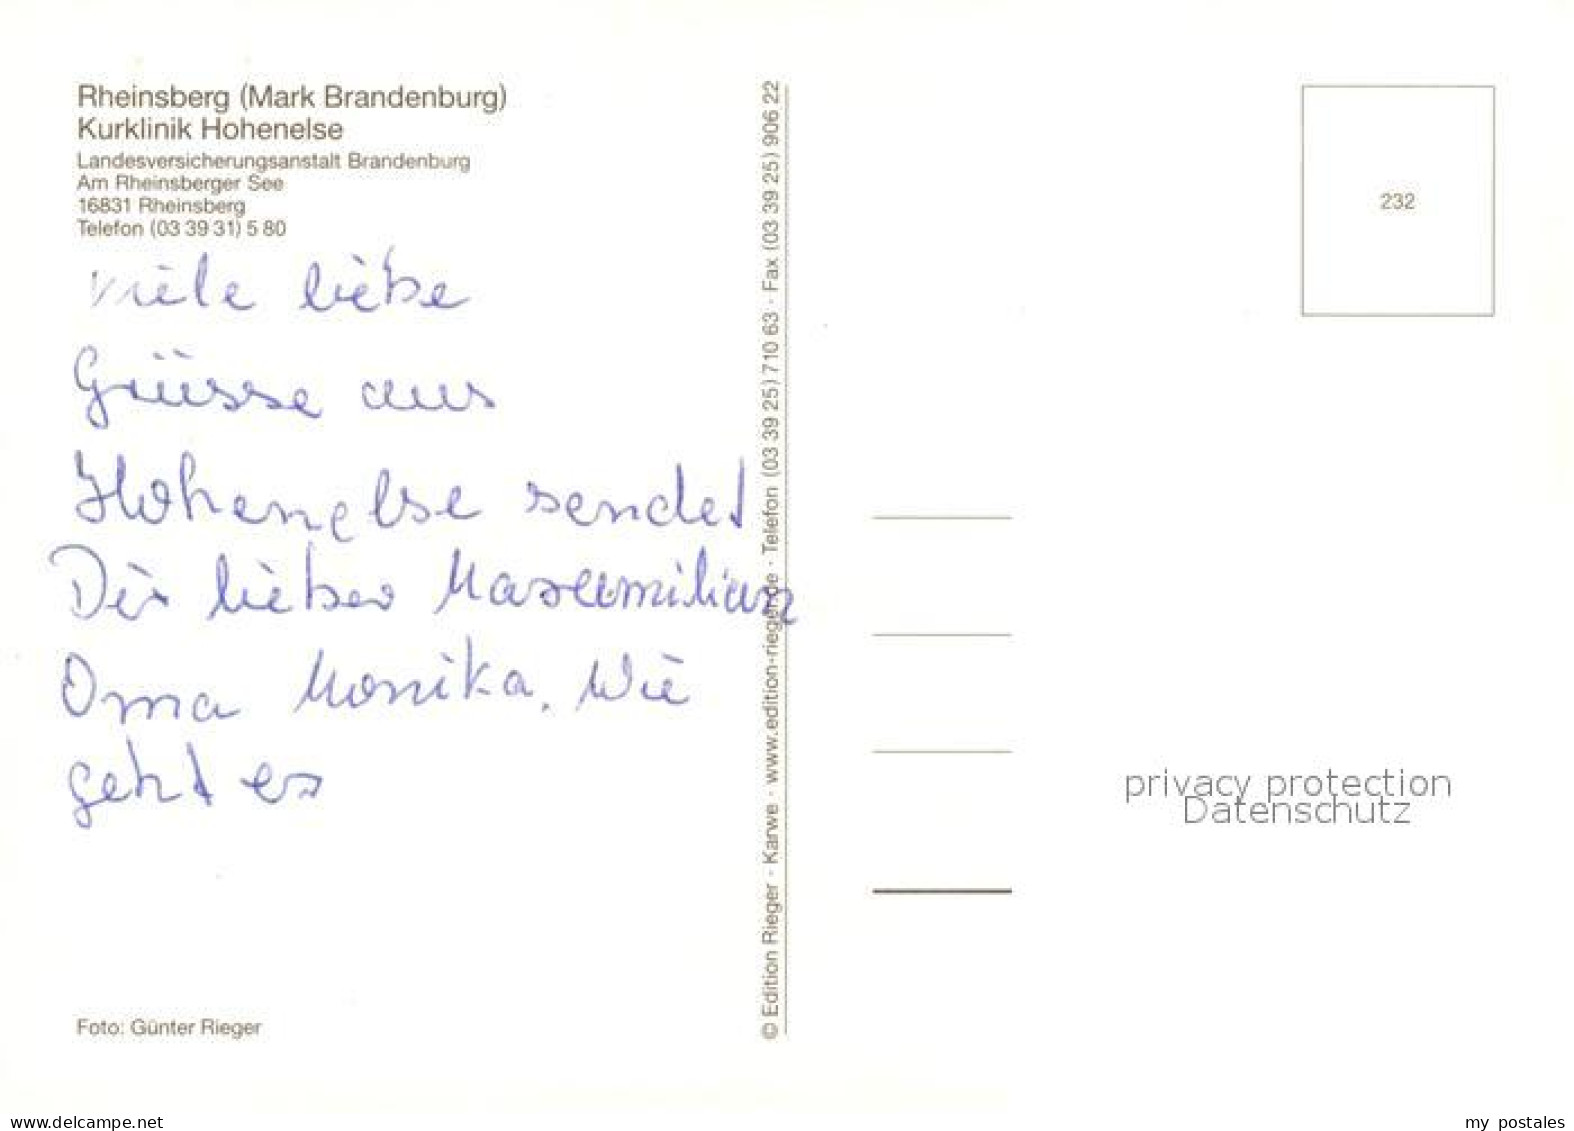 Rheinsberg (Mark Brandenburg)
Kurklinik Hohenelse
Landesversicherungsanstalt Brandenburg
Am Rheinsberger See
16831 Rheinsberg
Telefon (03 39 31) 5 80
viele liebe
Grüsse aus
Hohenelse sendet
Dir lieber Maxemilian
Oma Monika. Wie
geht es
Foto: Günter Rieger
© Edition Rieger · Karwe · www.edition-rieger.de · Telefon (03 39 25) 710 63 · Fax (03 39 25) 906 22
232
privacy protection
Datenschutz
www.delcampe.net
my postales